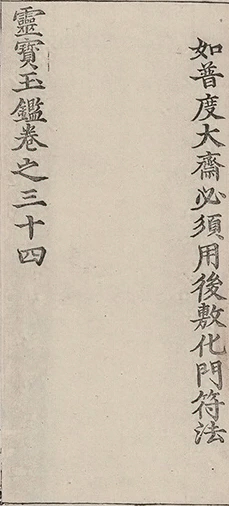 如普度大齋必須用後敷化門符法
靈寶玉鑑卷之三十四